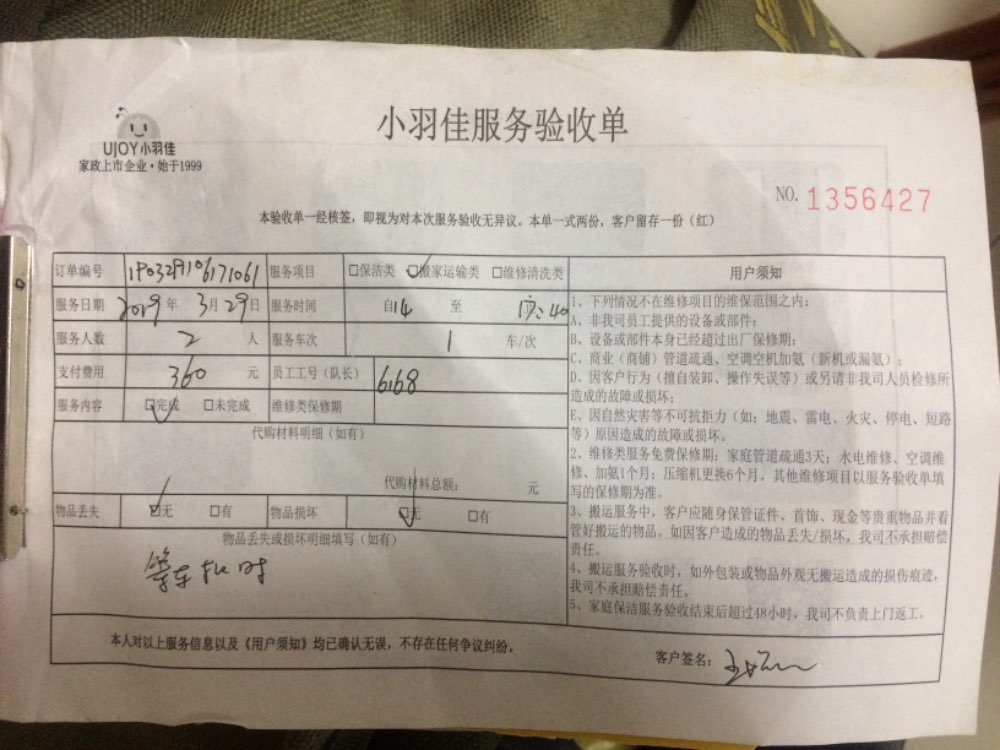 小羽佳服务验收单
UJOY小羽佳
家政上市企业·始于1999
NO. 1356427
本验收单一经核签，即视为对本次服务验收无异议。本单一式两份，客户留存一份（红）
订单编号 190329106171061 服务项目 □保洁类 □搬家运输类 □维修清洗类
服务日期 2019年 3月29日 服务时间 自14 至
服务人数 2 人 服务车次 1 车/次
支付费用 360 元 员工工号（队长） 6168
服务内容 □完成 □未完成 维修类保修期
代购材料明细（如有）
代购材料总额： 元
物品丢失 □无 □有 物品损坏 □无 □有
物品丢失或损坏明细填写（如有）
等车 时
用户须知
1、下列情况不在维修项目的维保范围之内：
A、非我司员工提供的设备或部件；
B、设备或部件本身已经超过出厂保修期；
C、商业（商铺）管道疏通、空调空机加氨（新机或漏氨）；
D、因客户行为（擅自装卸、操作失误等）或另请非我司人员检修所
造成的故障或损坏；
E、因自然灾害等不可抗拒力（如：地震、雷电、火灾、停电、短路
等）原因造成的故障或损坏。
2、维修类服务免费保修期：家庭管道疏通3天；水电维修、空调维
修、加氨1个月；压缩机更换6个月。其他维修项目以服务验收单填
写的保修期为准。
3、搬运服务中，客户应随身保管证件、首饰、现金等贵重物品并看
管好搬运的物品。如因客户造成的物品丢失/损坏，我司不承担赔偿
责任。
4、搬运服务验收时，如外包装或物品外观无搬运造成的损伤痕迹，
我司不承担赔偿责任。
5、家庭保洁服务验收结束后超过48小时，我司不负责上门返工。
本人对以上服务信息以及《用户须知》均已确认无误，不存在任何争议纠纷。
客户签名：